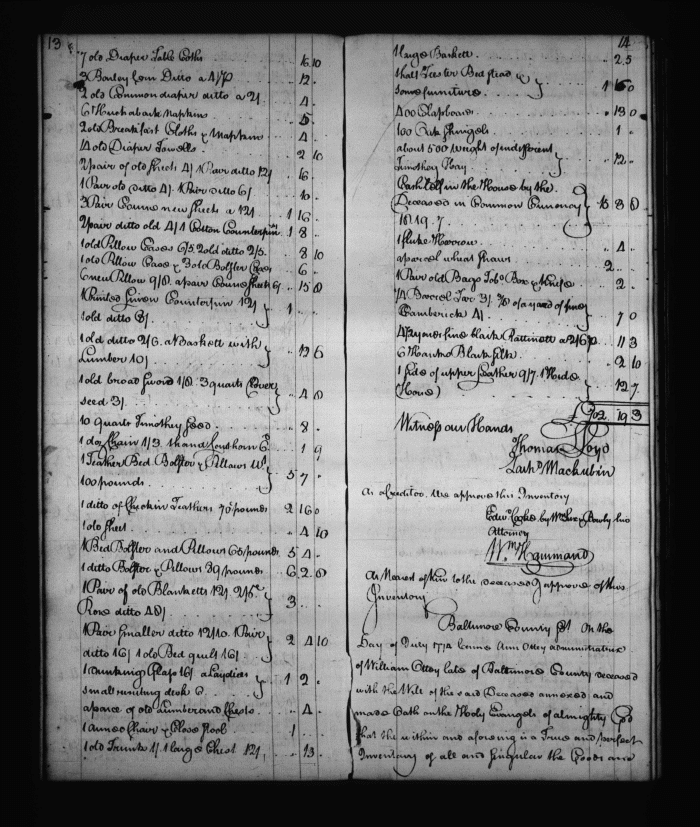 13
7 old Diaper Table Cloths . . . 16 10
3 Barley Corn Ditto a 4/ . . 12 .
2 old Common diaper ditto a 2/ . . 4 .
6 Huckaback Napkins . . 5 .
2 old Breakfast Cloths & Napkin . . 4 .
4 old Diaper Towells . . 2 10
2 pair of old sheets 4/ 1 Pair ditto 12/ . . 16 .
1 Pair old ditto 4/. 1 Pair ditto 6/ . . 10 .
3 Pair Coarse new sheets a 12/ . . 1 16 .
2 pair ditto old 4/ 1 Cotton Counterpin 1 8 .
1 old Pillow Cases 6/5. 2 old ditto 2/5. . . 8 10
1 old Pillow Case & 3 old Bolster Cases . . 6 .
6 new Pillow 9/8. a pair Coarse sheets 6/. . 15 8
1 Printed Linen Counterpin 12/
1 old ditto 8/ } 1 . .
1 old ditto 2/6. a Baskett with
Lumber 10/ } . 12 6
1 old broad Sword 1/8. 3 quarts Clover
seed 3/ } . 4 8
10 quarts Timothey Seed . . 8 .
1 dog Chain 1/3. 1 hand 1 9
1 Feather Bed Bolster & Pillows Wt
100 pounds } 5 7 .
1 ditto of Chickin Feathers 70 pounds 2 16 0
1 old sheet . . 4 10
1 Bed Bolster and Pillows 65 pounds 5 4 .
1 ditto Bolster & Pillows 39 pounds 6 2 6
1 Pair of old Blanketts 12/. 2
Rose ditto 48/ } 3 . .
1 Pair smaller ditto 12/10. 1 Pair
ditto 16/ 1 old Bed quilt 16/ } 2 4 10
1 Glass 16/ a Laydies
small writing desk 6 } 1 2 .
a parce of old Lumber and Chests . . 4 .
1 Armed Chair & Close Stool . . 1 .
1 old Trunk 4/. 1 large Chest 12/, . . 13 .
14
1 large Baskett . . 2 5
1 half Teester Bed stead &
some furniture. } 1 15 0
400 Clapboards . . 13 0
100 Oak Shingels . . 1 .
about 500 weight of indifferent
Timothey Hay. } . 12 .
Cash left in the House by the
Deceased in Common Currency } 15 8 6
10.19.7.
1 fluke Harrow . . 4 .
a parcel wheat straw . . 2 . .
1 Pair old Bags Tobo Box & Knife . . 2 .
3/4 Barrel Tar 3/. of a yard of fine
Camberick 4/. } . 7 0
4 yds superfine black Rattinett a 2/6 . 11 3
6 Black silk. . . 2 10
1 side of upper Leather 9/7. 1 Hide
(Horse) } . 12 7
£ 902. 19 3
Witness our Hands
Thomas Loyd
Zachs Mackubin
As a Creditor. We approve this Inventory
Edwd Cooke by
Attorney
Wm Hammond
As Nearest of Kin to the deceased I approve of this
Inventory
Baltimore County Sct. On the
Day of July 1772 Came Ann Ottey administratrix
of William Ottey late of Baltimore County deceased
with the Will of the said Deceased annexed and
made Oath on the Holy Evangels of almighty God
that the within and aforesaid is a True and perfect
Inventory of all and singular the Goods and